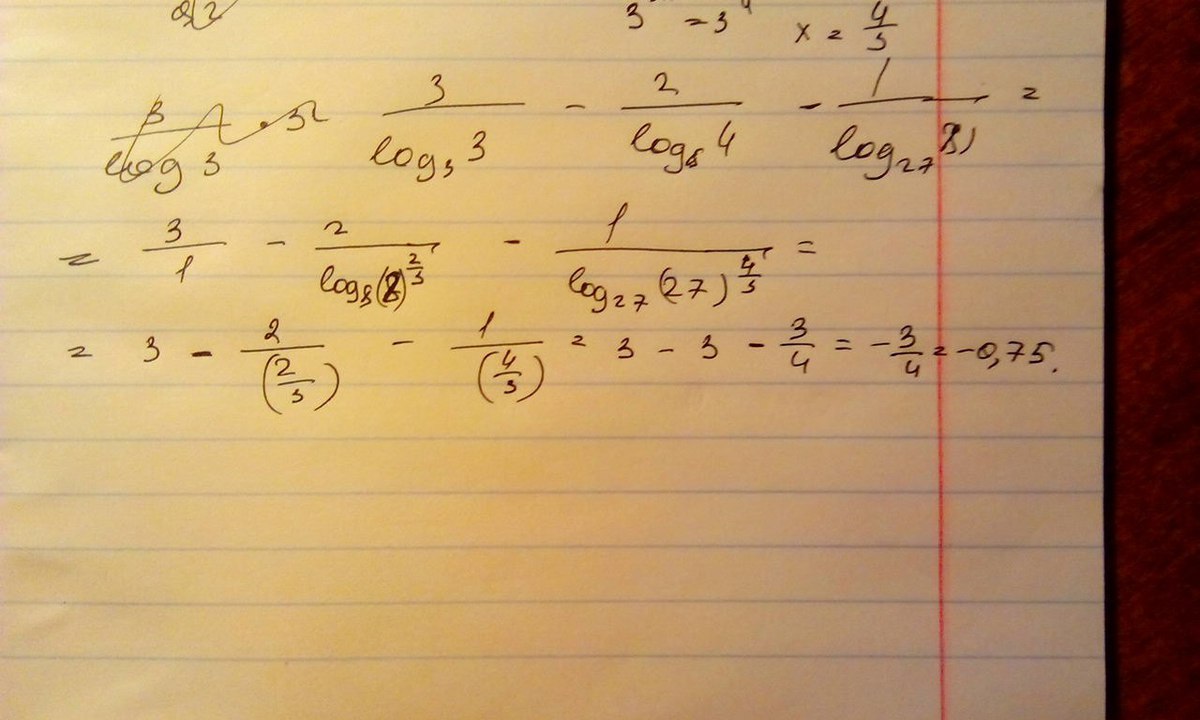 3 = 3⁴ x = 4/3
3/log₃ 3 - 2/log₈ 4 - 1/log₂₇ 81 =
= 3/1 - 2/log₈(8)^(2/3) - 1/log₂₇(27)^(4/3) =
= 3 - 2/(2/3) - 1/(4/3) = 3 - 3 - 3/4 = -3/4 = -0,75.